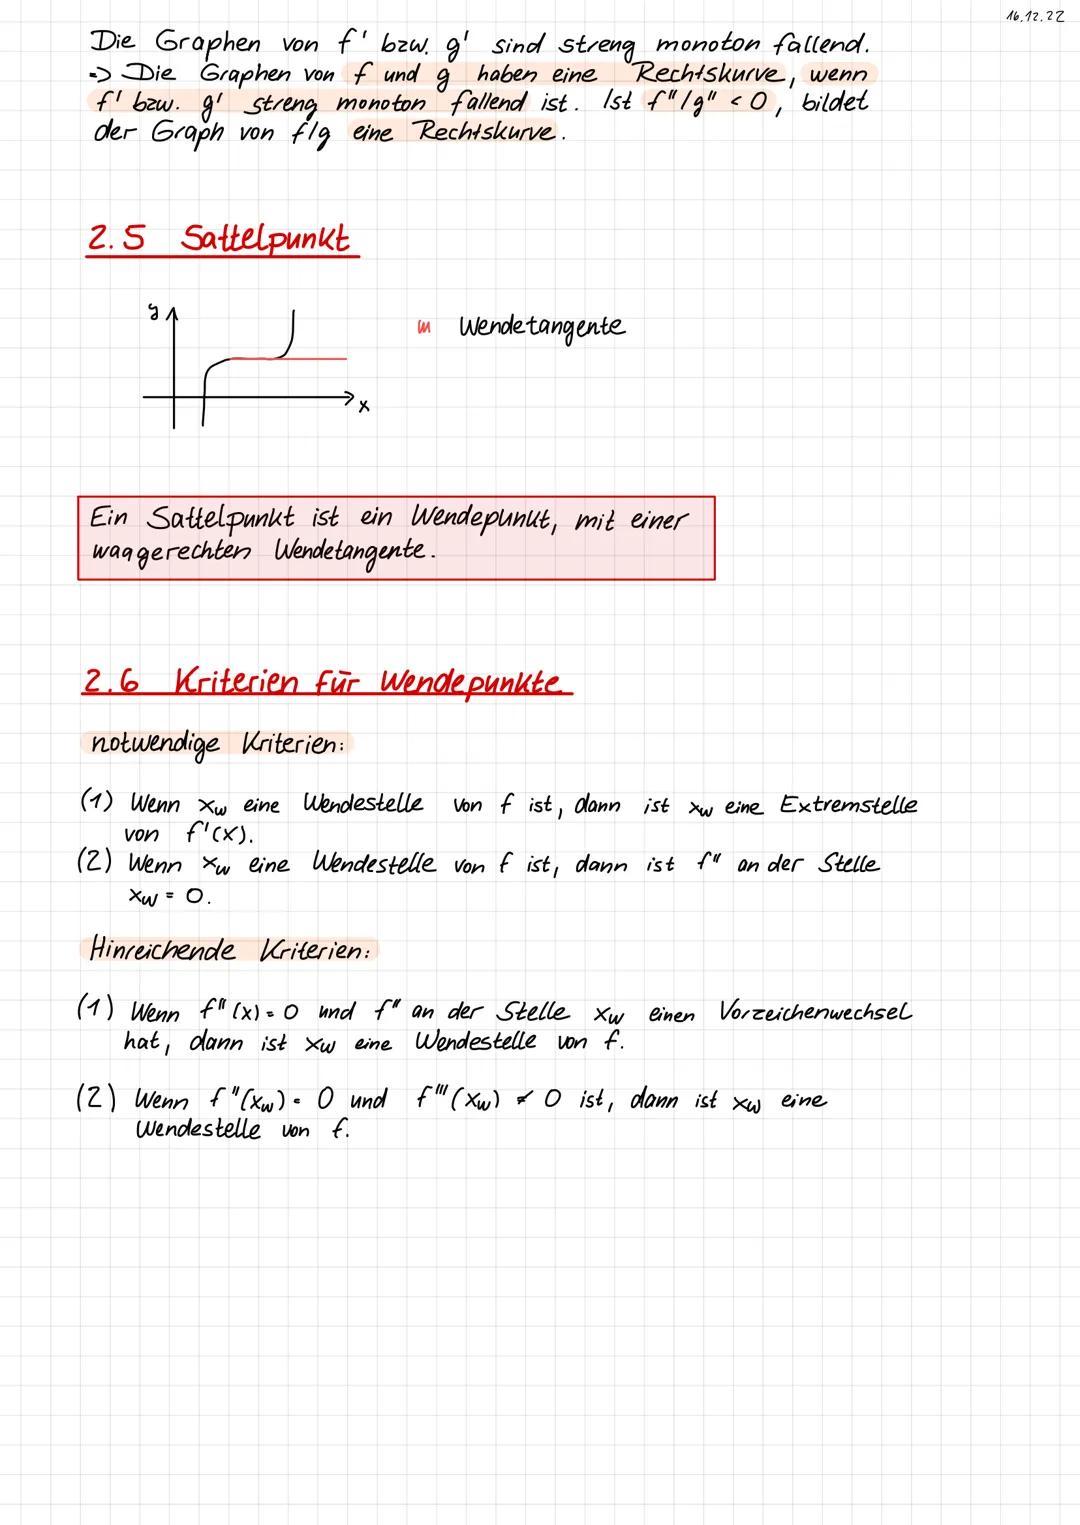 16.12.22
Die Graphen von f' bzw. g' sind streng monoton fallend.
=> Die Graphen von f und g haben eine Rechtskurve, wenn
f' bzw. g' streng monoton fallend ist. Ist f''/g'' < 0, bildet
der Graph von f/g eine Rechtskurve.
2.5 Sattelpunkt
y
x
Wendetangente
Ein Sattelpunkt ist ein Wendepunkt, mit einer
waagerechten Wendetangente.
2.6 Kriterien für Wendepunkte
notwendige Kriterien:
(1) Wenn xw eine Wendestelle von f ist, dann ist xw eine Extremstelle
von f'(x).
(2) Wenn xw eine Wendestelle von f ist, dann ist f'' an der Stelle
xw = 0.
Hinreichende Kriterien:
(1) Wenn f''(x) = 0 und f'' an der Stelle xw einen Vorzeichenwechsel
hat, dann ist xw eine Wendestelle von f.
(2) Wenn f''(xw) = 0 und f'''(xw) ≠ 0 ist, dann ist xw eine
Wendestelle von f.